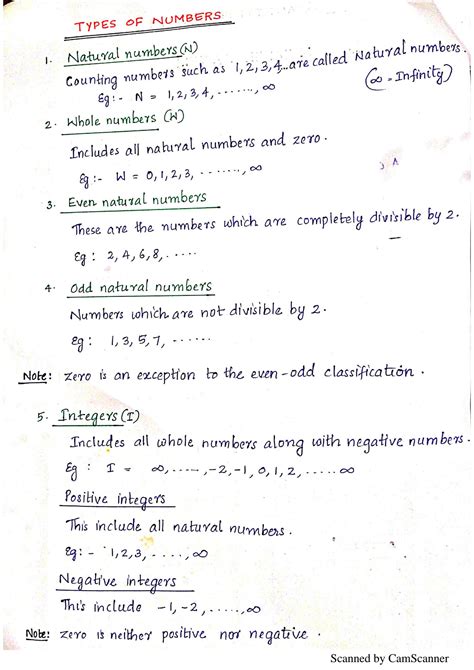 TYPES OF NUMBERS
1. Natural numbers (N)
Counting numbers such as 1,2,3,4,...are called Natural numbers.
Eg:- N = 1,2,3,4,.......,∞ (∞ - Infinity)
2. Whole numbers (W)
Includes all natural numbers and zero.
Eg:- W = 0,1,2,3,.......,∞
3. Even natural numbers
These are the numbers which are completely divisible by 2.
Eg: 2,4,6,8,.....
4. Odd natural numbers
Numbers which are not divisible by 2.
Eg: 1,3,5,7,.....
Note: zero is an exception to the even-odd classification.
5. Integers (I)
Includes all whole numbers along with negative numbers.
Eg: I = ∞,....,-2,-1,0,1,2,.....∞
Positive integers
This include all natural numbers.
Eg:- 1,2,3,....,∞
Negative integers
This include -1,-2,....,∞
Note: zero is neither positive nor negative.
Scanned by CamScanner